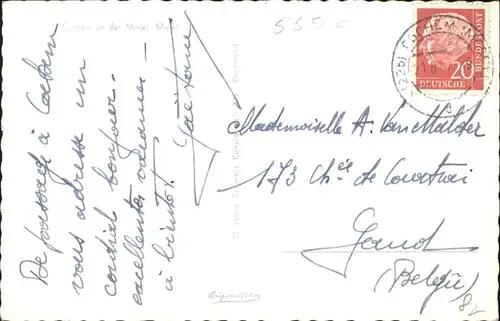 Cochem an der Mosel, Markt
5595 c
De passage à Cochem
vous adresse un
cordial bonjour.
excellentes vacances –
à bientôt. Gaëtane
Mademoiselle A. Van Malder
173 Ch^ée de Courtrai
Gand
(Belgie)
82
(22b) COCHEM
20
DEUTSCHE
BUNDESPOST
Originalfoto